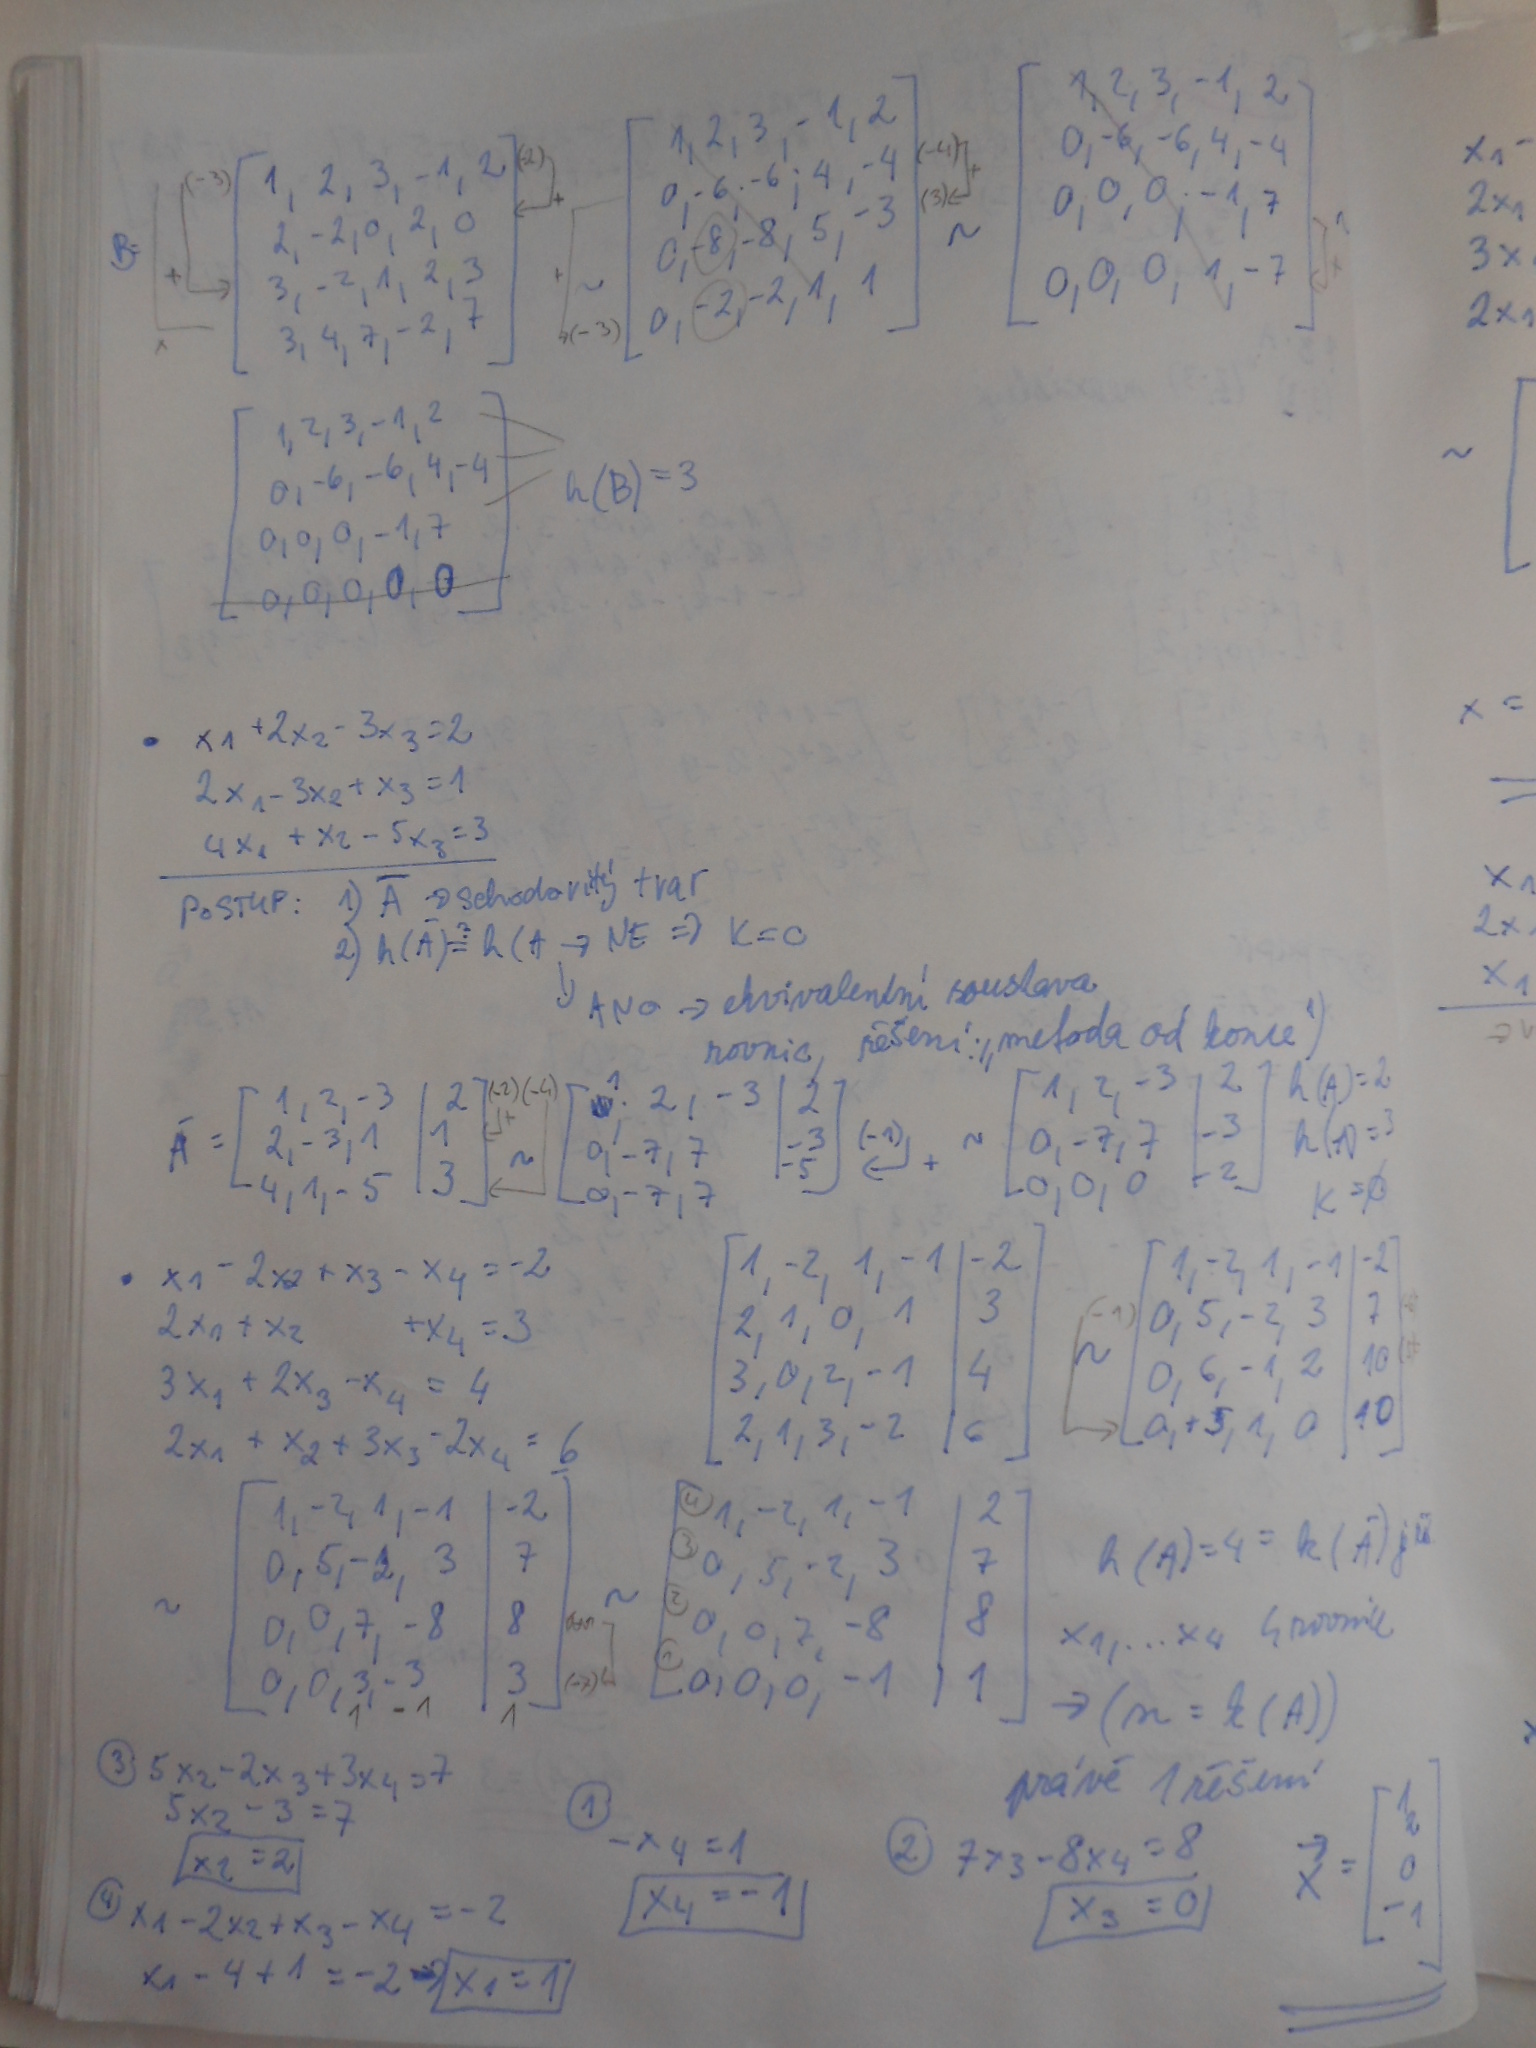 B=
(-3) [1, 2, 3, -1, 2] (-2) +
+ [2, -2, 0, 2, 0]
[3, -2, 1, 2, 3]
[3, 4, 7, -2, 7]
~
+ (-3)
[1, 2, 3, -1, 2]
[0, -6, -6, 4, -4] (-4) +
[0, -8, -8, 5, -3] (3)
[0, -2, -2, 1, 1]
~
[1, 2, 3, -1, 2]
[0, -6, -6, 4, -4]
[0, 0, 0, -1, 7]
[0, 0, 0, 1, -7] +
[1, 2, 3, -1, 2]
[0, -6, -6, 4, -4] h(B) = 3
[0, 0, 0, -1, 7]
[0, 0, 0, 0, 0]
• x1 + 2x2 - 3x3 = 2
2x1 - 3x2 + x3 = 1
4x1 + x2 - 5x3 = 3
POSTUP: 1) Ā → schodovitý tvar
2) h(Ā) ≟ h(A → NE ⇒ K = 0
ANO → ekvivalentní soustava
rovnic, řešení: „metoda od konce")
Ā = [1, 2, -3 | 2] (-2) (-4)
[2, -3, 1 | 1] +
[4, 1, -5 | 3]
~
[1, 2, -3 | 2]
[0, -7, 7 | -3] (-1)
[0, -7, 7 | -5] +
~
[1, 2, -3 | 2] h(A) = 2
[0, -7, 7 | -3] h(Ā) = 3
[0, 0, 0 | -2] K = ∅
• x1 - 2x2 + x3 - x4 = -2
2x1 + x2 + x4 = 3
3x1 + 2x3 - x4 = 4
2x1 + x2 + 3x3 - 2x4 = 6
[1, -2, 1, -1 | -2]
[2, 1, 0, 1 | 3]
[3, 0, 2, -1 | 4]
[2, 1, 3, -2 | 6]
(-1) ~
[1, -2, 1, -1 | -2]
[0, 5, -2, 3 | 7]
[0, 6, -1, 2 | 10]
[0, +5, 1, 0 | 10]
~
[1, -2, 1, -1 | -2]
[0, 5, -2, 3 | 7]
[0, 0, 7, -8 | 8]
[0, 0, 3, -3 | 3] (-7)
1 -1 1
~
④ [1, -2, 1, -1 | 2]
③ [0, 5, -2, 3 | 7]
② [0, 0, 7, -8 | 8]
① [0, 0, 0, -1 | 1]
h(A) = 4 = h(Ā)
x1, ... x4 4 rovnic
→ (n = h(A))
právě 1 řešení
③ 5x2 - 2x3 + 3x4 = 7
5x2 - 3 = 7
x2 = 2
① -x4 = 1
x4 = -1
② 7x3 - 8x4 = 8
x3 = 0
x = [1
2
0
-1]
④ x1 - 2x2 + x3 - x4 = -2
x1 - 4 + 1 = -2 → x1 = 1
x1 -
2x1
3x
2x1
~
x =
x1
2x1
x1